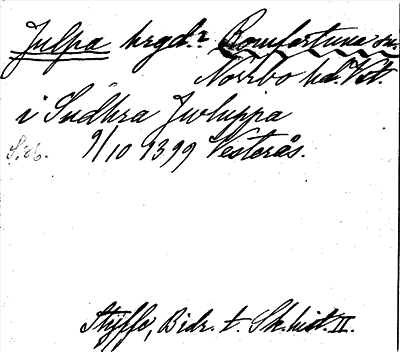 Julpa hrgd:r Bomfortuna sn.
Norrbo hd. Vstl.
i Sudhra Jwluppa
S. 26. 9/10 1399 Vesterås.
Styffe, Bidr. t. Sk. hist. II.